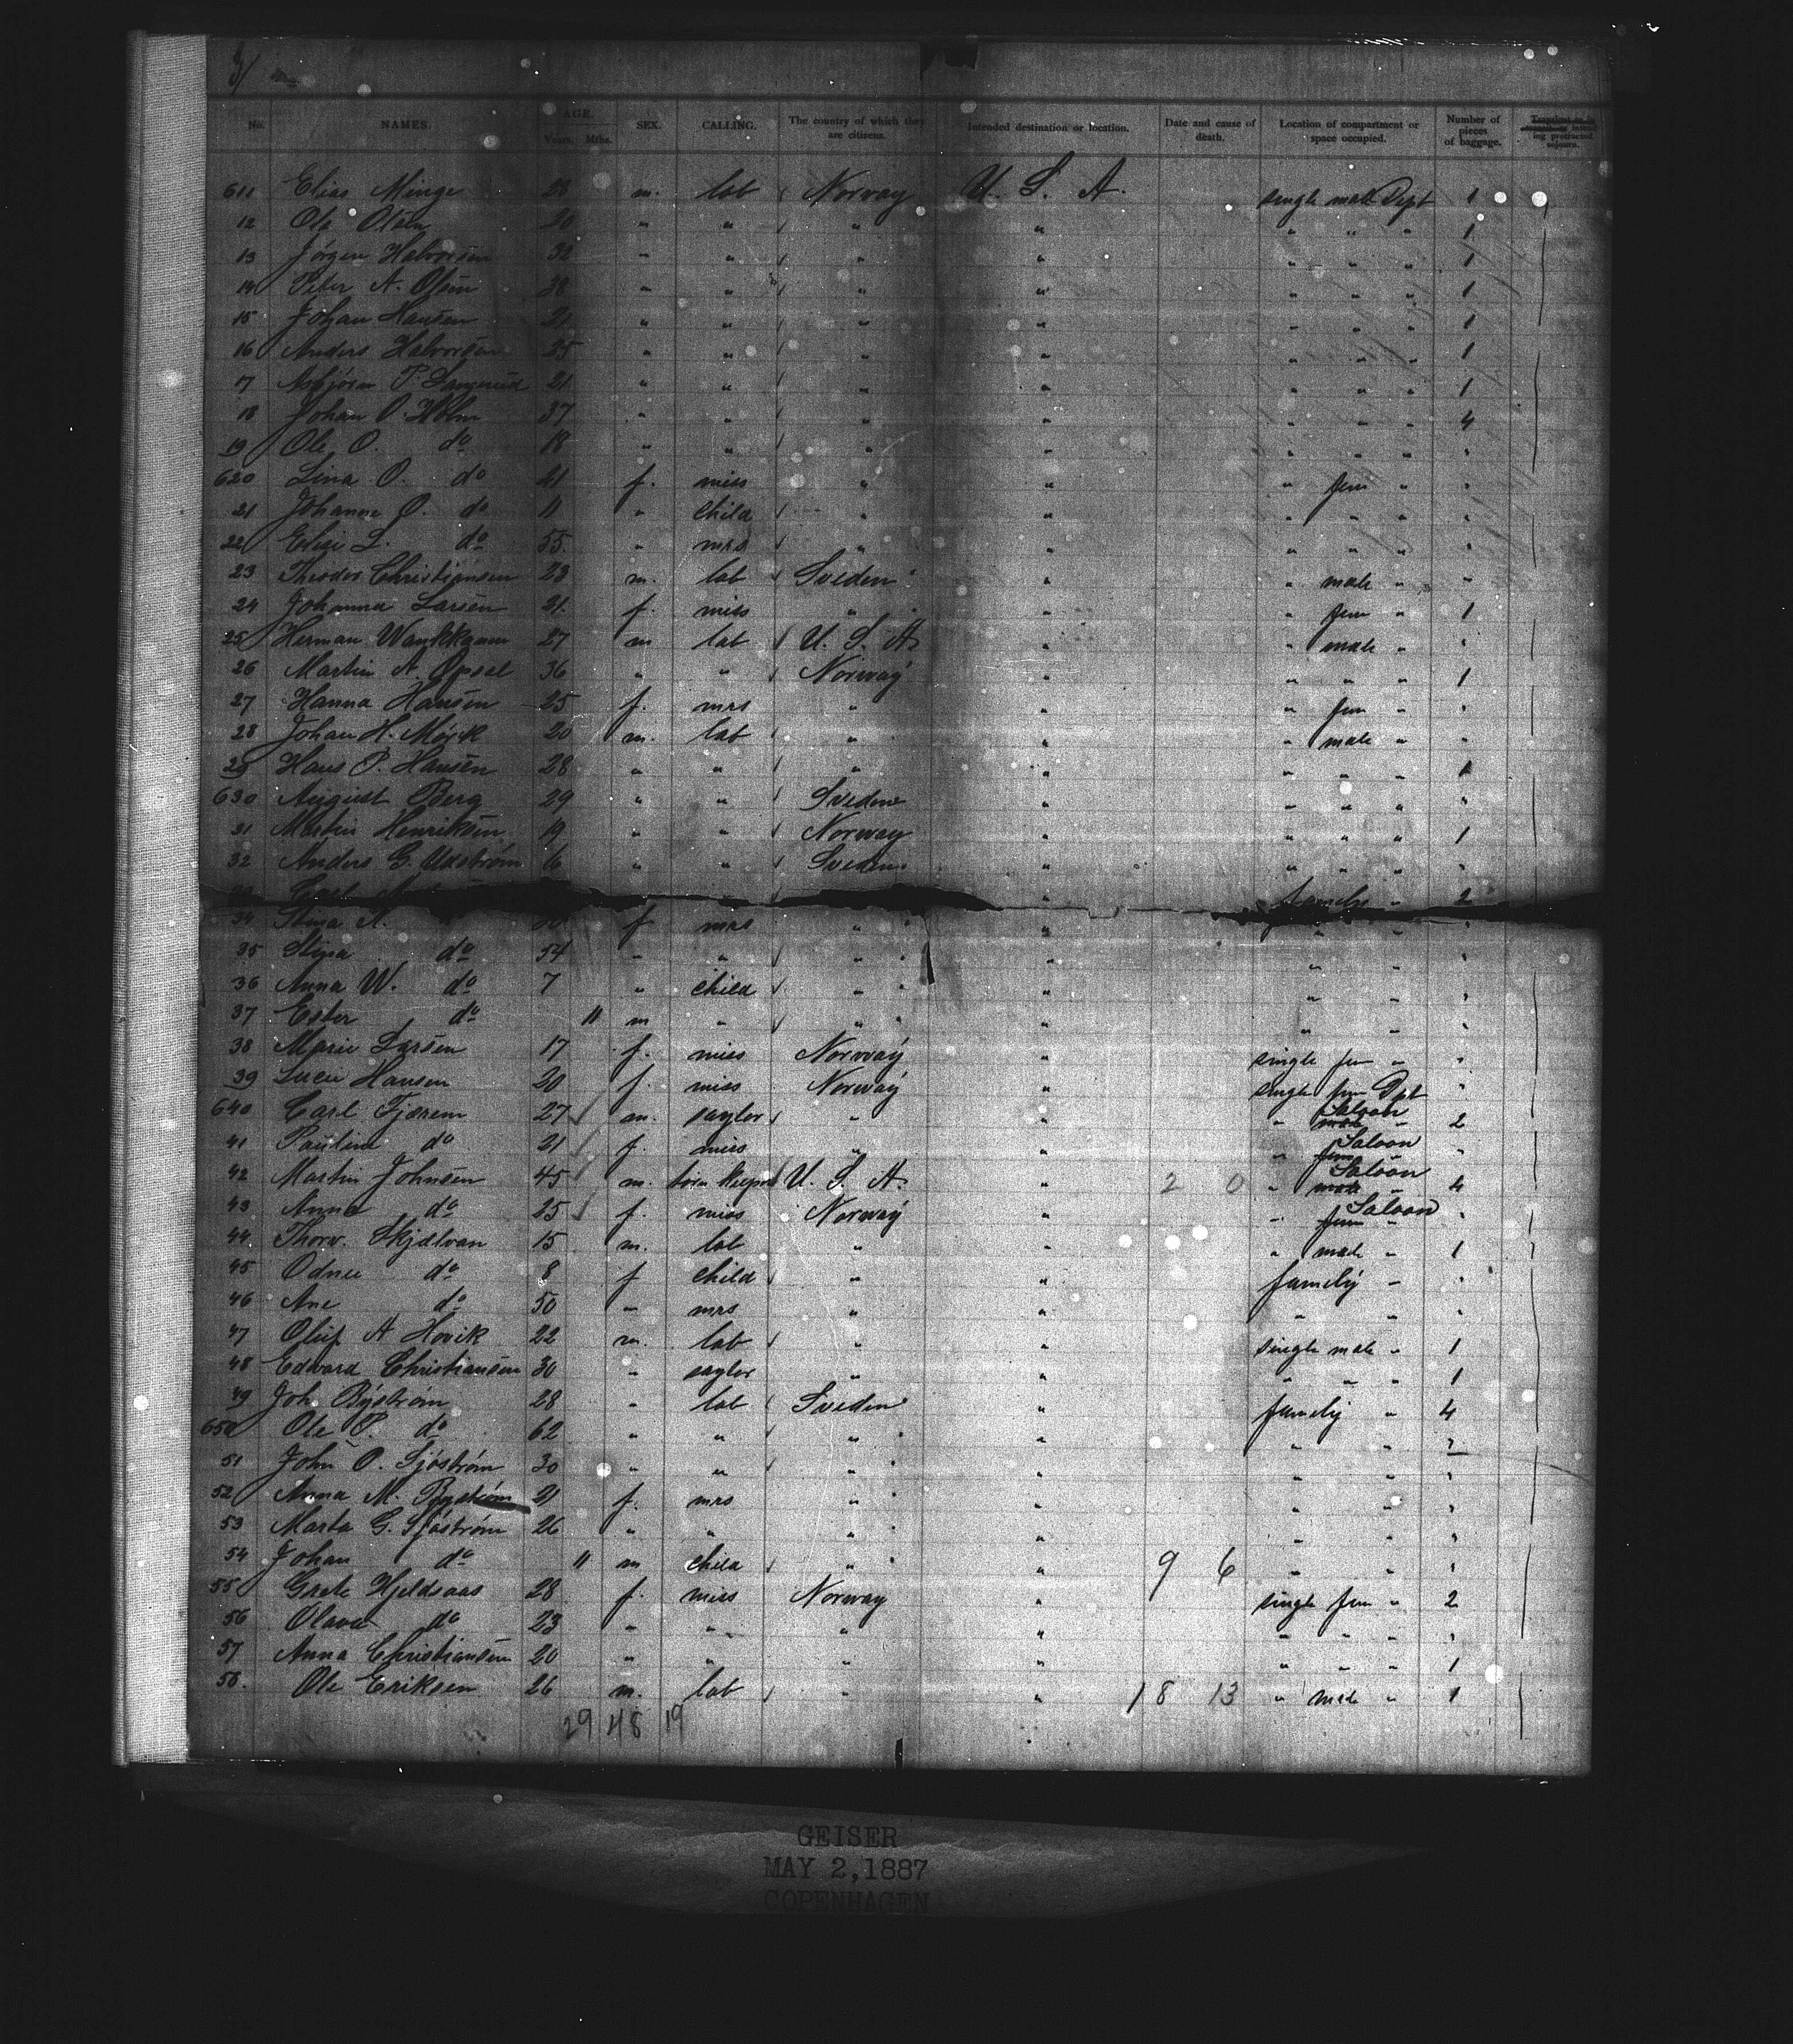 No. NAMES. AGE. Years. Mths. SEX. CALLING. The country of which they are citizens. Intended destination or location. Date and cause of death. Location of compartment or space occupied. Number of pieces of baggage.
611 Elias Minge 23 m. lab Norway U. S. A. single male Dept 1
12 Ole Olsen 20 " " " " " " " 1
13 Jörgen Halvorsen 32 " " " " " " " 1
14 Peter A. Olsen 38 " " " " " " " 1
15 Johan Hansen 21 " " " " " " " 1
16 Anders Halvorsen 25 " " " " " " " 1
17 Asbjörn P. 21 " " " " " " " 1
18 Johan O. Holm 37 " " " " " " " 4
19 Ole O. do 18 " " " " " " " "
620 Lina O. do 41 f. miss " " " fem " "
21 Johanne O. do 11 " child " " " " " "
22 L. do 55 " mrs " " " " " "
23 Theodor Christiansen 23 m. lab Sveden " " male " "
24 Johanna Larsen 21 f. miss " " " fem " 1
25 Herman 27 m lab U. S. A. " " male " "
26 Martin A. Opsal 36 " " Norway " " " " 1
27 Hanna Hansen 25 f. mrs " " " fem " "
28 Johan H. 20 m. lab " " " male " "
29 Hans P. Hansen 28 " " " " " " " 1
630 August Berg 29 " " Sveden " " " " "
31 Martin Henriksen 19 " " Norway " " " " 1
32 Anders G. 6 " " Sveden " " " " "
family " 2
34 Stina A. f mrs " " " " "
35 Stina do 54 " " " " " " "
36 Anna W. do 7 " child " " " " "
37 Ester do 11 m " " " " " "
38 Marie Larsen 17 f. miss Norway " single fem " "
39 Hansen 20 f. miss Norway " single fem Dpt "
640 Carl Tjærem 27 m. saylor " " " Saloon " 2
41 Pauline do 21 f. miss " " " Saloon " "
42 Martin Johnsen 45 m. U. S. A. " 2 0 " Saloon " 4
43 Anna do 25 f. miss Norway " " Saloon " "
44 Thorv. Skjælvan 15 m. lab " " " male " 1
45 do 8 f child " " family " "
46 Ane do 50 " mrs " " " " "
47 A Hovik 22 m. lab " " single male " 1
48 Edward Christiansen 30 " saylor " " " " " 1
49 Joh. Byström 28 " lab Sveden " family " 4
650 Ole P. do 62 " " " " " " "
51 John O. Sjöström 30 " " " " " " "
52 Anna M. Byström 21 f. mrs " " " " "
53 Marta G. Sjöström 26 " " " " " " "
54 Johan do 11 m child " " 9 6 " " "
55 Grete Hjeldsaas 28 f. miss Norway " single fem " 2
56 do 23 " " " " " " " "
57 Anna Christiansen 20 " " " " " " " 1
58. Ole Eriksen 26 m. lab " " 18 13 " male " 1
29 48 19
GEISER
MAY 2,1887
COPENHAGEN